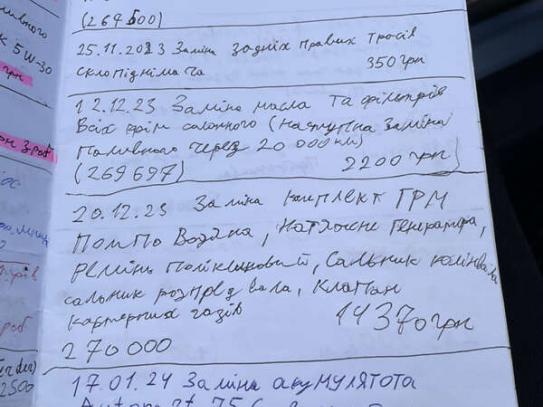 5W-30
грн
(264500)
25.11.2023 Заміна Задніх правих тросів
склопіднімача 350грн
12.12.23 Заміна масла та фільтрів
Всіх крім салонного (наступна заміна
Паливного через 20 000км)
(269697) 2200 грн
20.12.23 Заміна комплект ГРМ
Помпа Водяна, Натяжне генератора,
ремінь Полікліновий, Сальник
сальник розпред вала, Клапан
картерних газів 14370грн
270000
17.01.24 Заміна акумулятота
2500